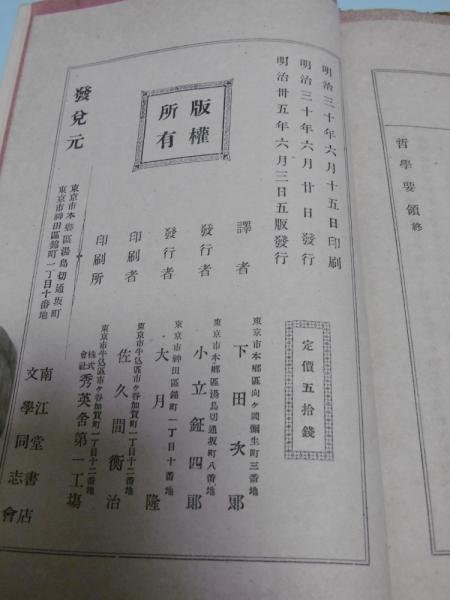 哲學要領終
明治三十年六月十五日印刷
明治三十年六月廿日發行
明治卅五年六月三日五版發行
定價五拾錢
版權
所有
東京市本鄕區向ヶ岡彌生町三番地
譯者 下田次郞
東京市本鄕區湯島切通坂町八番地
發行者 小立鉦四郞
東京市神田區錦町一丁目十番地
發行者 大月隆
東京市牛込區市ヶ谷加賀町一丁目十二番地
印刷者 佐久間衡治
東京市牛込區市ヶ谷加賀町一丁目十二番地
印刷所 株式會社秀英舍第一工場
發兌元
東京市本鄕區湯島切通坂町
南江堂書店
東京市神田區錦町一丁目十番地
文學同志會